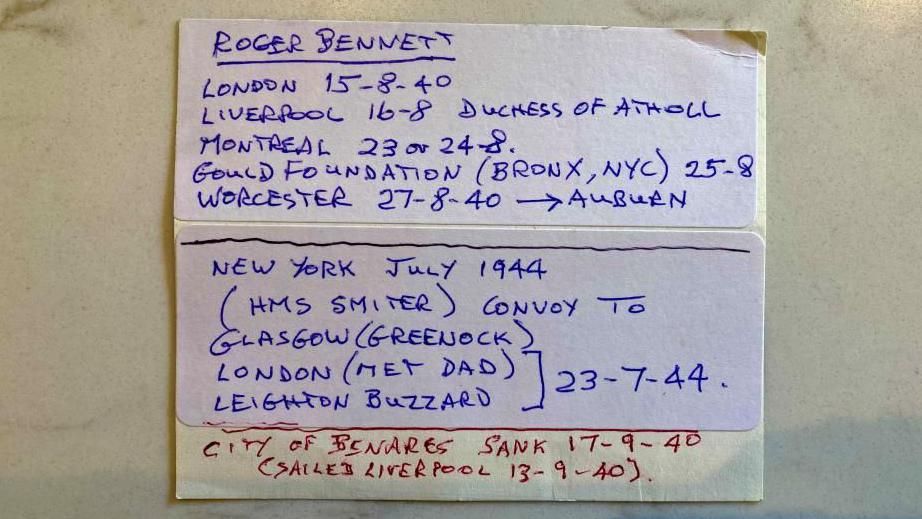 ROGER BENNETT
LONDON 15-8-40
LIVERPOOL 16-8 DUCHESS OF ATHOLL
MONTREAL 23 or 24-8.
GOULD FOUNDATION (BRONX, NYC) 25-8
WORCESTER 27-8-40 → AUBURN
NEW YORK JULY 1944
(HMS SMITER) CONVOY TO
GLASGOW (GREENOCK)
LONDON (MET DAD) ] 23-7-44.
LEIGHTON BUZZARD
CITY OF BENARES SANK 17-9-40
(SAILED LIVERPOOL 13-9-40).